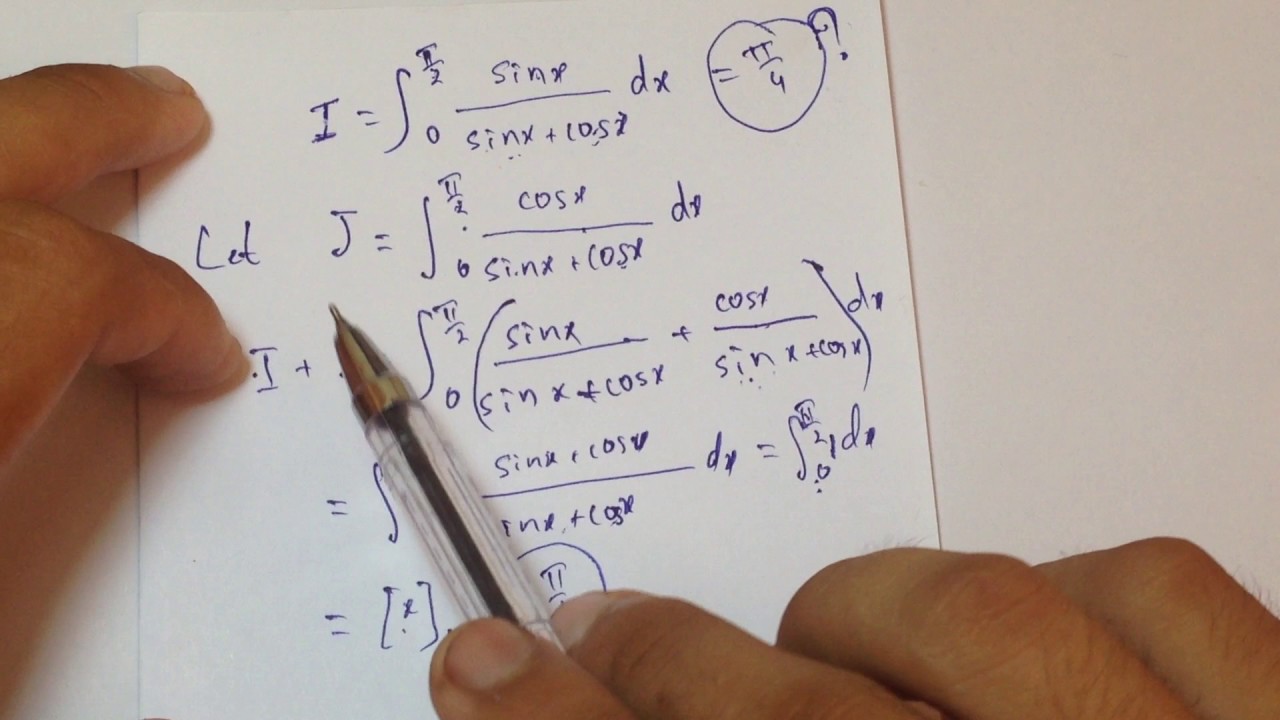 I = ∫₀^(π/2) sinx / (sinx + cosx) dx = π/4 ?
Let J = ∫₀^(π/2) cosx / (sinx + cosx) dx
I + ∫₀^(π/2) ( sinx / (sinx + cosx) + cosx / (sinx + cosx) ) dx
= ∫ (sinx + cosx) / (inx + cosx) dx = ∫₀^(π/2) 1 dx
= [x] π